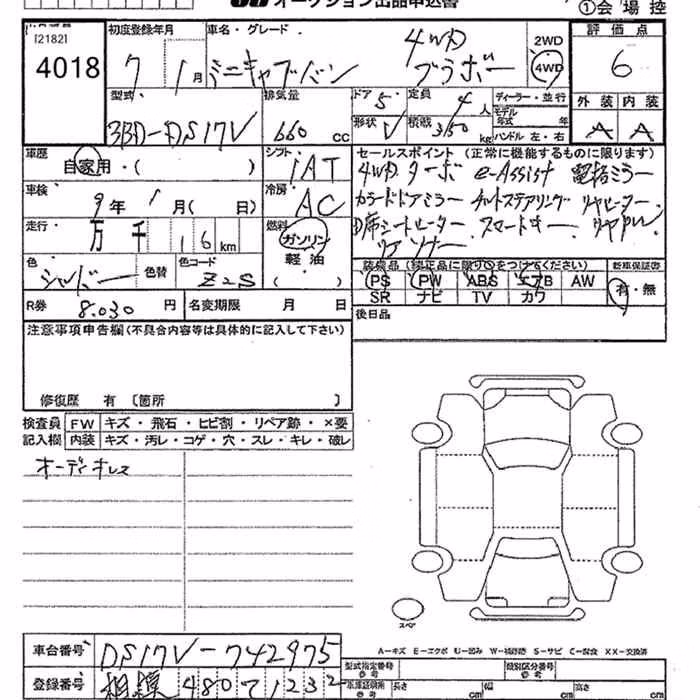 オークション出品申込書
①会場控
[2182]
4018
初度登録年月
7 1月
車名・グレード
ミニキャブバン 4WD ブラボー
2WD
4WD
評価点
6
型式
3BD-DS17V
排気量
660 cc
ドア 5
定員 4人
形状 V
積載 350 kg
ディーラー・並行
モデル年式 年
ハンドル 左・右
外装 内装
A A
車歴
自家用・( )
シフト
IAT
セールスポイント (正常に機能するものに限ります)
4WD ターボ e-Assist 電格ミラー
カラードドアミラー チルトステアリング リヤヒーター
D席シートヒーター スマートキー
リヤソナー
車検
9年 1月( 日)
冷房
AC
走行
万 千 16 km
燃料
ガソリン
軽油
色
シルバー
色替
色コード
Z2S
装備品 (純正品に限り○をつけてください)
PS PW ABS エアB AW
SR ナビ TV カワ
新車保証書
有・無
R券 8.030 円
名変期限 月 日
後日品
注意事項申告欄(不具合内容等は具体的に記入して下さい)
修復歴 有 〔箇所 〕
検査員記入欄
FW キズ・飛石・ヒビ割・リペア跡・×要
内装 キズ・汚レ・コゲ・穴・スレ・キレ・破レ
オーディオレス
スペア
A-キズ E-エクボ U-凹み W-補修跡 S-サビ C-腐食 XX-交換済
車台番号 DS17V-742975
登録番号 相模 480 71232
型式指定番号 参考
類別区分番号 参考
車庫証明用 参考 長さ cm 幅 cm 高さ cm